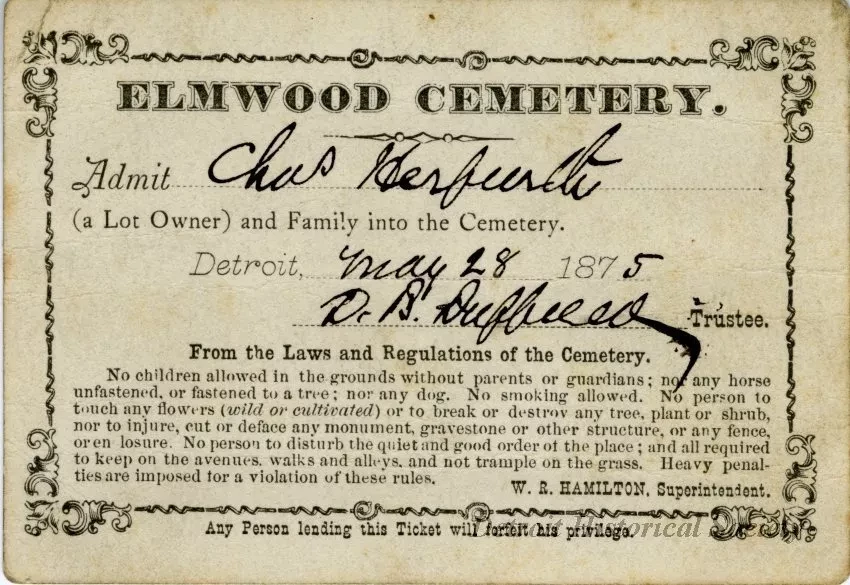 ELMWOOD CEMETERY.
Admit Chas
(a Lot Owner) and Family into the Cemetery.
Detroit, May 28 1875
D. B. Duffield Trustee.
From the Laws and Regulations of the Cemetery.
No children allowed in the grounds without parents or guardians; nor any horse
unfastened, or fastened to a tree; nor any dog. No smoking allowed. No person to
touch any flowers (wild or cultivated) or to break or destroy any tree, plant or shrub,
nor to injure, cut or deface any monument, gravestone or other structure, or any fence,
or en losure. No person to disturb the quiet and good order of the place; and all required
to keep on the avenues, walks and alleys, and not trample on the grass. Heavy penal-
ties are imposed for a violation of these rules.
W. R. HAMILTON, Superintendent.
Any Person lending this Ticket will forfeit his privilege.
Detroit Historical Society